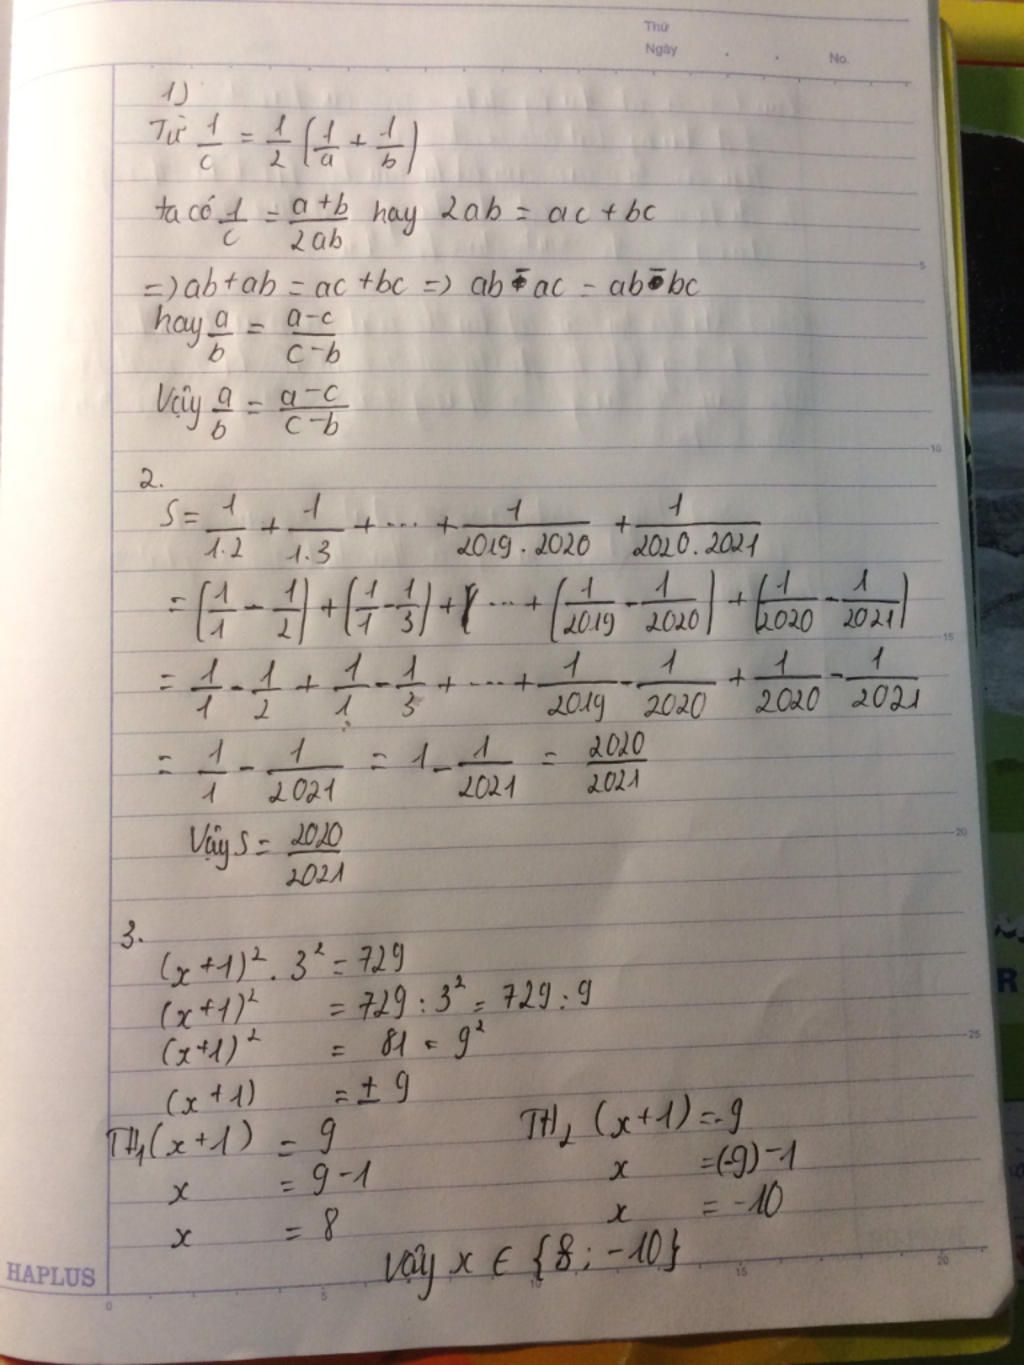 Thứ
Ngày . . No.
1)
Từ 1/c = 1/2 (1/a + 1/b)
ta có 1/c = (a+b)/2ab hay 2ab = ac + bc
=> ab + ab = ac + bc => ab - ac = ab - bc
hay a/b = (a-c)/(c-b)
Vậy a/b = (a-c)/(c-b)
2.
S = 1/1.2 + 1/1.3 + ... + 1/2019.2020 + 1/2020.2021
= (1/1 - 1/2) + (1/1 - 1/3) + ... + (1/2019 - 1/2020) + (1/2020 - 1/2021)
= 1/1 - 1/2 + 1/1 - 1/3 + ... + 1/2019 - 1/2020 + 1/2020 - 1/2021
= 1/1 - 1/2021 = 1 - 1/2021 = 2020/2021
Vậy S = 2020/2021
3.
(x+1)² . 3² = 729
(x+1)² = 729 : 3² = 729 : 9
(x+1)² = 81 = 9²
(x+1) = ± 9
TH₁ (x+1) = 9 TH₂ (x+1) = -9
x = 9-1 x = (-9)-1
x = 8 x = -10
Vậy x ∈ {8 ; -10}
HAPLUS
0 5 10 15 20
5
10
15
20
25
R